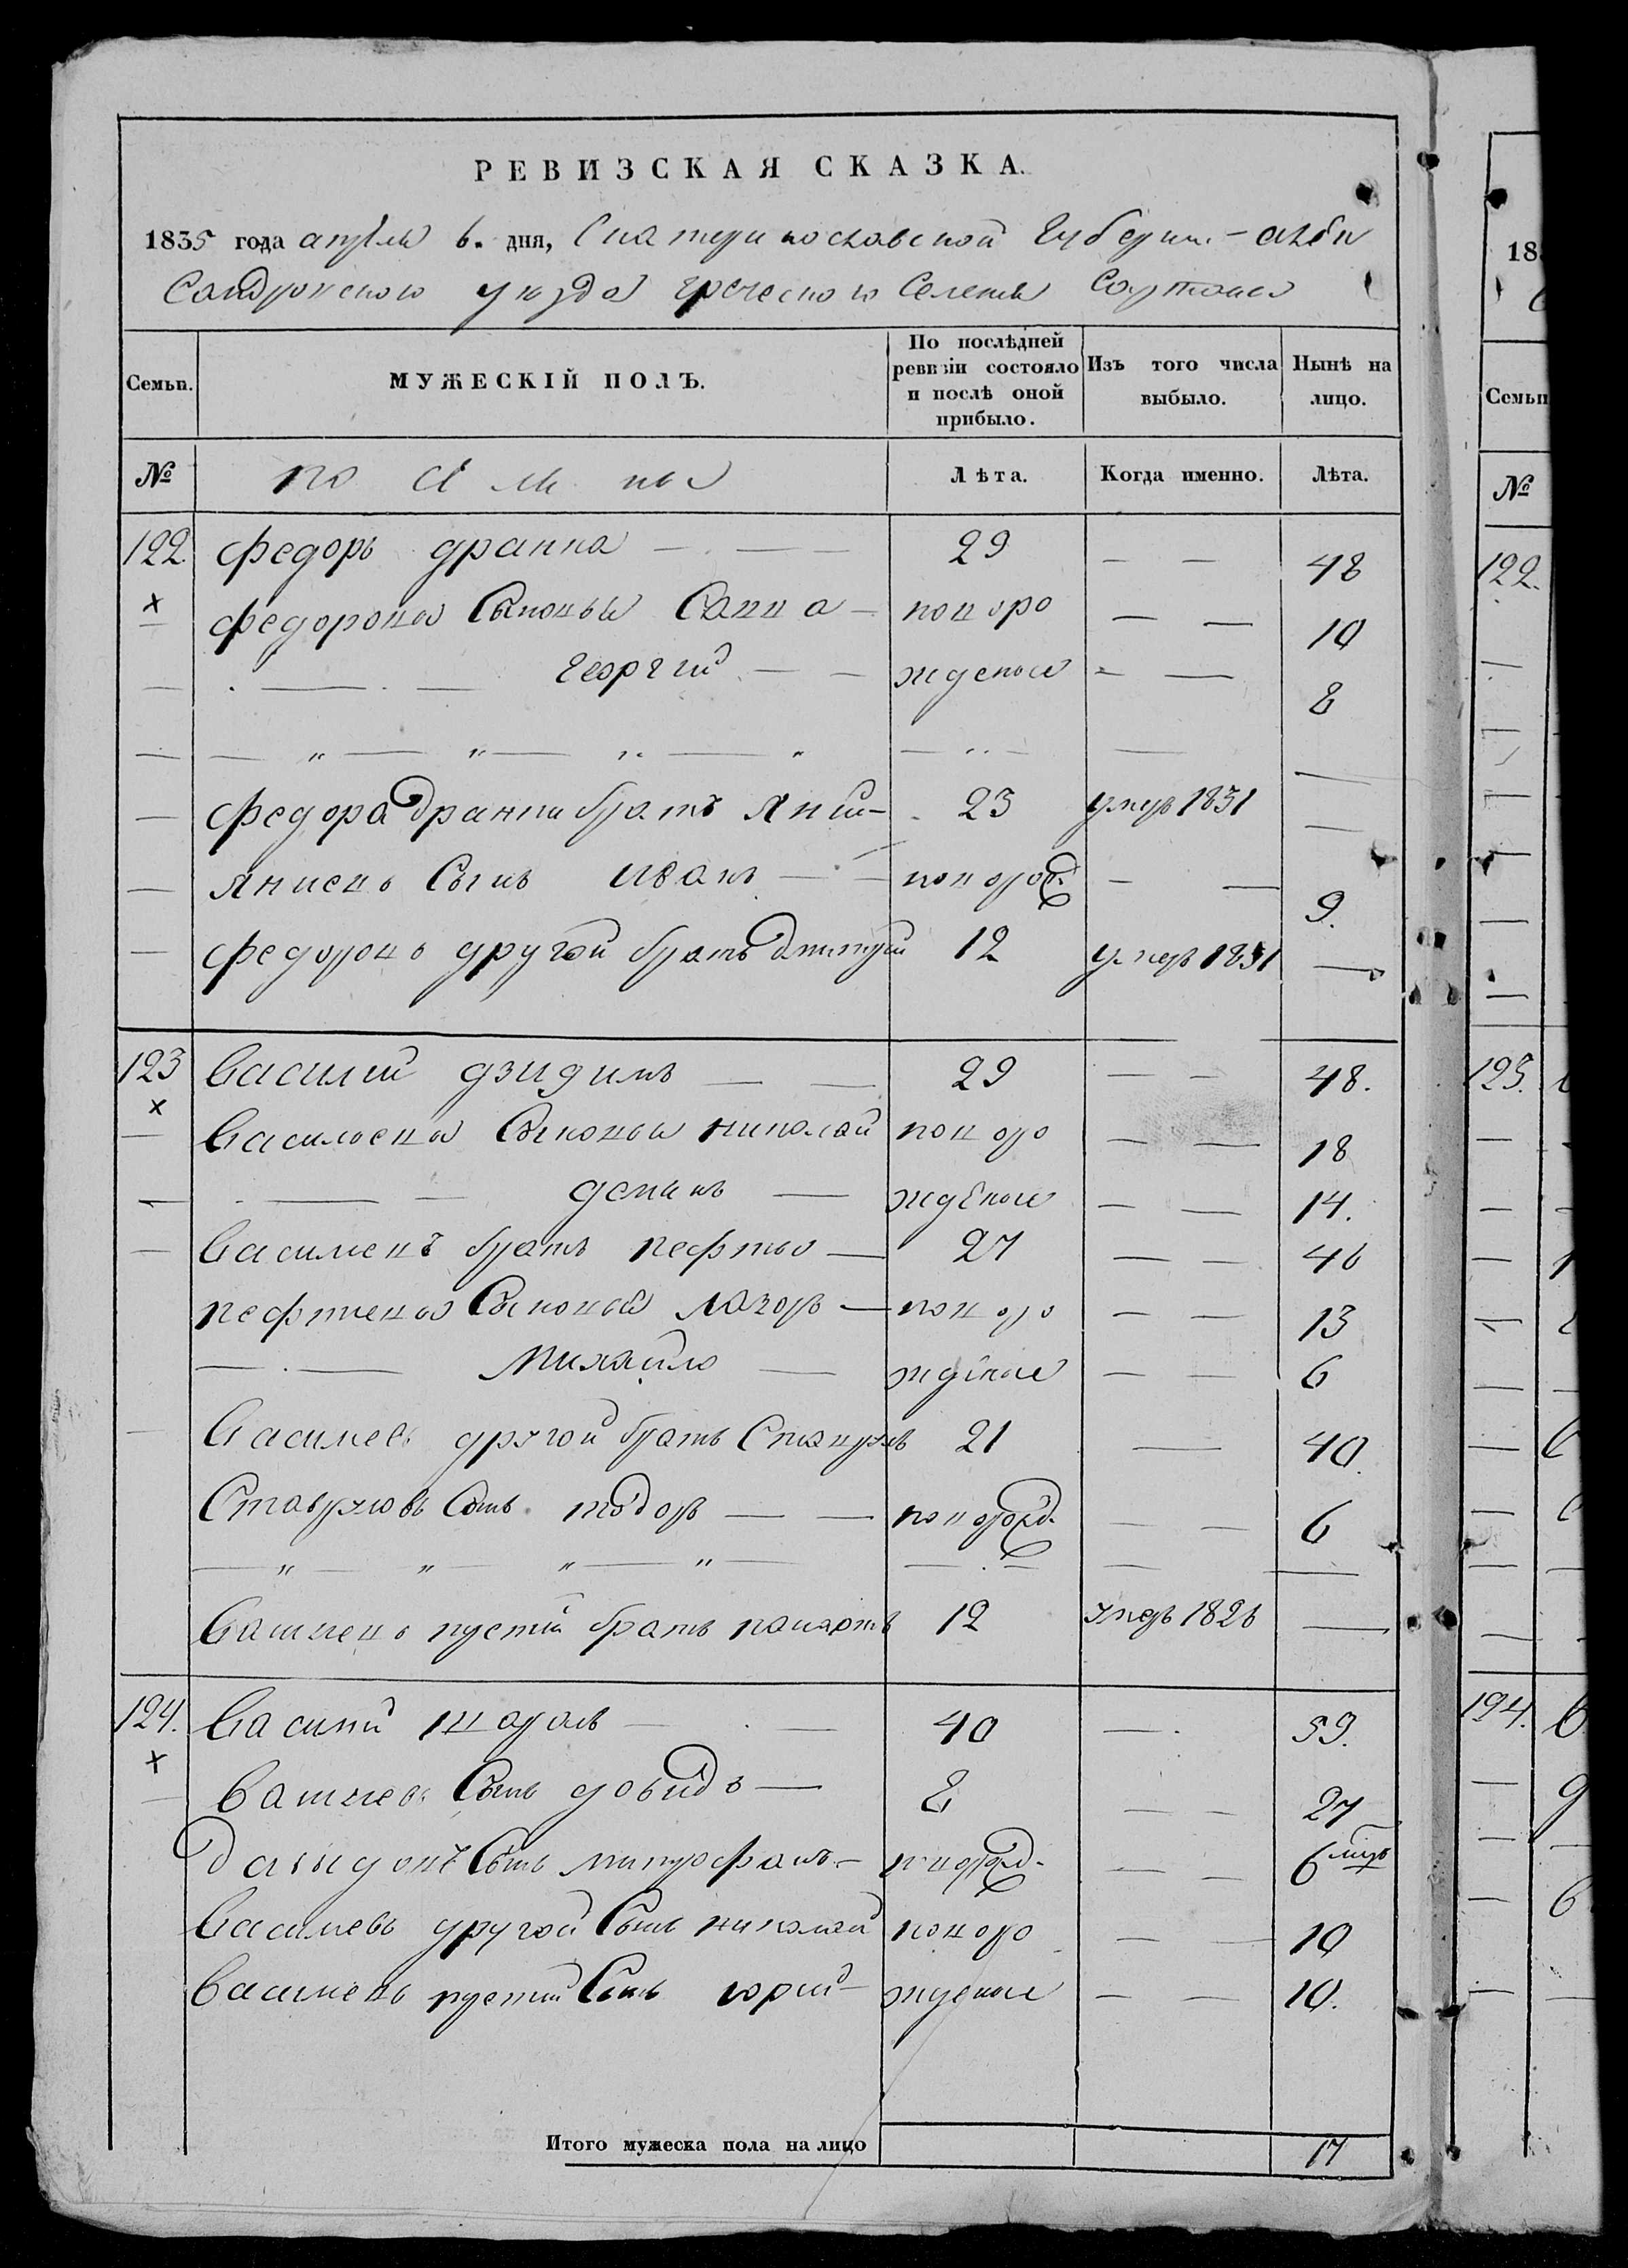 РЕВИЗСКАЯ СКАЗКА.
1835 года апреля 6. дня, Екатеринославской Губернии - Алек
сандровского уезда греческого Селения Сартана
Семьи. МУЖЕСКІЙ ПОЛЪ. По послѣдней ревизіи состояло и послѣ оной прибыло. Изъ того числа выбыло. Нынѣ на лицо.
№ Лѣта. Когда именно. Лѣта.
122. Федоръ Дранна — — — 29 — — 48
Федоровы Сыновья Савва — новоро — — 10
Георгий — — жденые — — 8
Федора Дранни братъ Яний — 23 умеръ 1831 —
Яниевъ Сынъ Иванъ — — новорожд — — 9.
Федоровъ другой братъ Дмитрий 12 умеръ 1831 —
123 Василий Дзидимъ — — 29 — — 48.
Васильевы Сыновья Николай новоро — — 18
Демянъ — жденые — — 14.
Васильевъ братъ Пефтьо — 27 — — 46
Пефтиевы Сыновья Лазоръ — новоро — — 13
Михайло — жденые — — 6
Васильевъ другой братъ Ставулъ 21 — 40.
Ставуловъ Сынъ Тодоръ — — новорожд. — — 6
Васильевъ третий братъ Панаотъ 12 умеръ 1826 —
124. Василий Шаполъ — — 40 — 59.
Васильевъ Сынъ Давидъ — 8 — — 27
Давидовъ Сынъ Митрофанъ — новорожд. — — 6 мцъ
Васильевъ другой Сынъ Николай новоро — — 10
Васильевъ третий Сынъ Юрий — жденые — — 10.
Итого мужеска пола на лицо 17
18
Семьи
№
122.
123.
124.